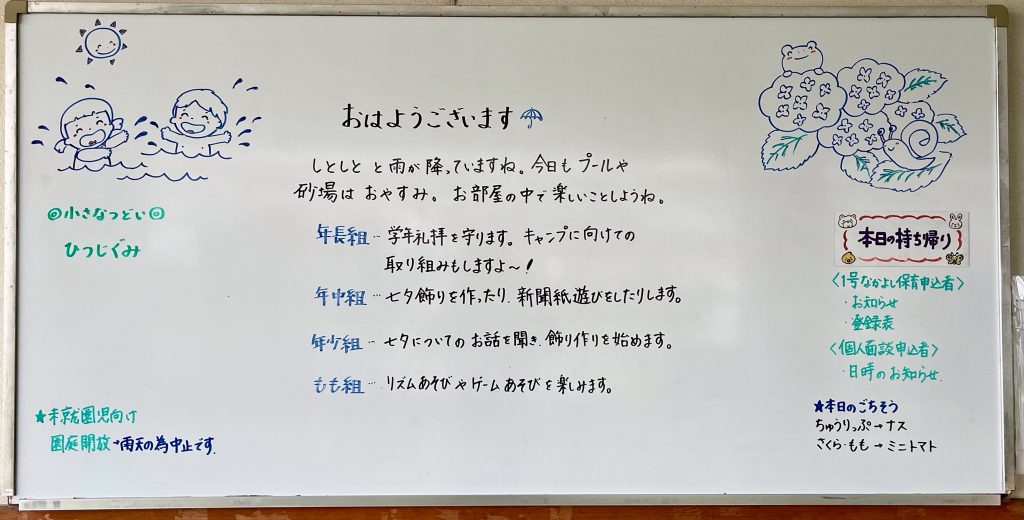 おはようございます
しとしと と雨が降っていますね。今日も プールや
砂場は おやすみ。お部屋の中で楽しいことしようね。
年長組…学年礼拝を守ります。キャンプに向けての
取り組みもしますよ～!
年中組…七夕飾りを作ったり、新聞紙遊びをしたりします。
年少組…七夕についてのお話を聞き、飾り作りを始めます。
もも組…リズムあそびやゲームあそびを楽しみます。
◎小さなつどい◎
ひつじぐみ
★未就園児向け
園庭開放→雨天の為中止です。
本日の持ち帰り
〈1号なかよし保育申込者〉
・お知らせ
・登録表
〈個人面談申込者〉
・日時のお知らせ
★本日のごちそう
ちゅうりっぷ→ナス
さくら・もも→ミニトマト